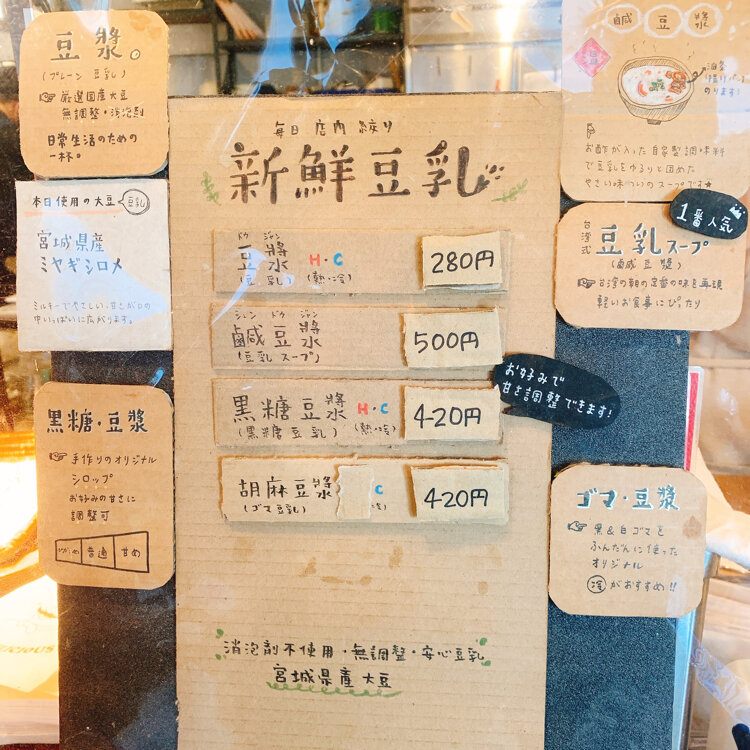 豆漿。
(プレーン 豆乳)
厳選国産大豆
無調整・消泡剤
日常生活のための
一杯。
本日使用の大豆 豆乳
宮城県産
ミヤギシロメ
ミルキーでやさしい甘さが口の
中いっぱいに広がります。
黒糖・豆漿
手作りのオリジナル
シロップ
お好みの甘さに
調整可
普通 甘め
毎日店内 絞り
新鮮豆乳
ドウ ジャン
豆漿
(豆乳)
H・C
(熱・冷)
280円
シェン ドウ ジャン
鹹豆漿
(豆乳スープ)
500円
黒糖豆漿
(黒糖豆乳)
H・C
(熱・冷)
420円
お好みで
甘さ調整できます!
胡麻豆漿
(ゴマ豆乳)
C
冷)
420円
消泡剤不使用・無調整・安心豆乳
宮城県産大豆
鹹 豆 漿
のります!
お酢が入った自家製調味料
で豆乳をゆるりと固めた
やさしい味わいのスープです★
1番人気
台湾式
豆乳スープ
(鹹豆漿)
台湾の朝の定番の味を再現
軽いお食事にぴったり
ゴマ・豆漿
黒&白ゴマを
ふんだんに使った
オリジナル
冷がおすすめ!!